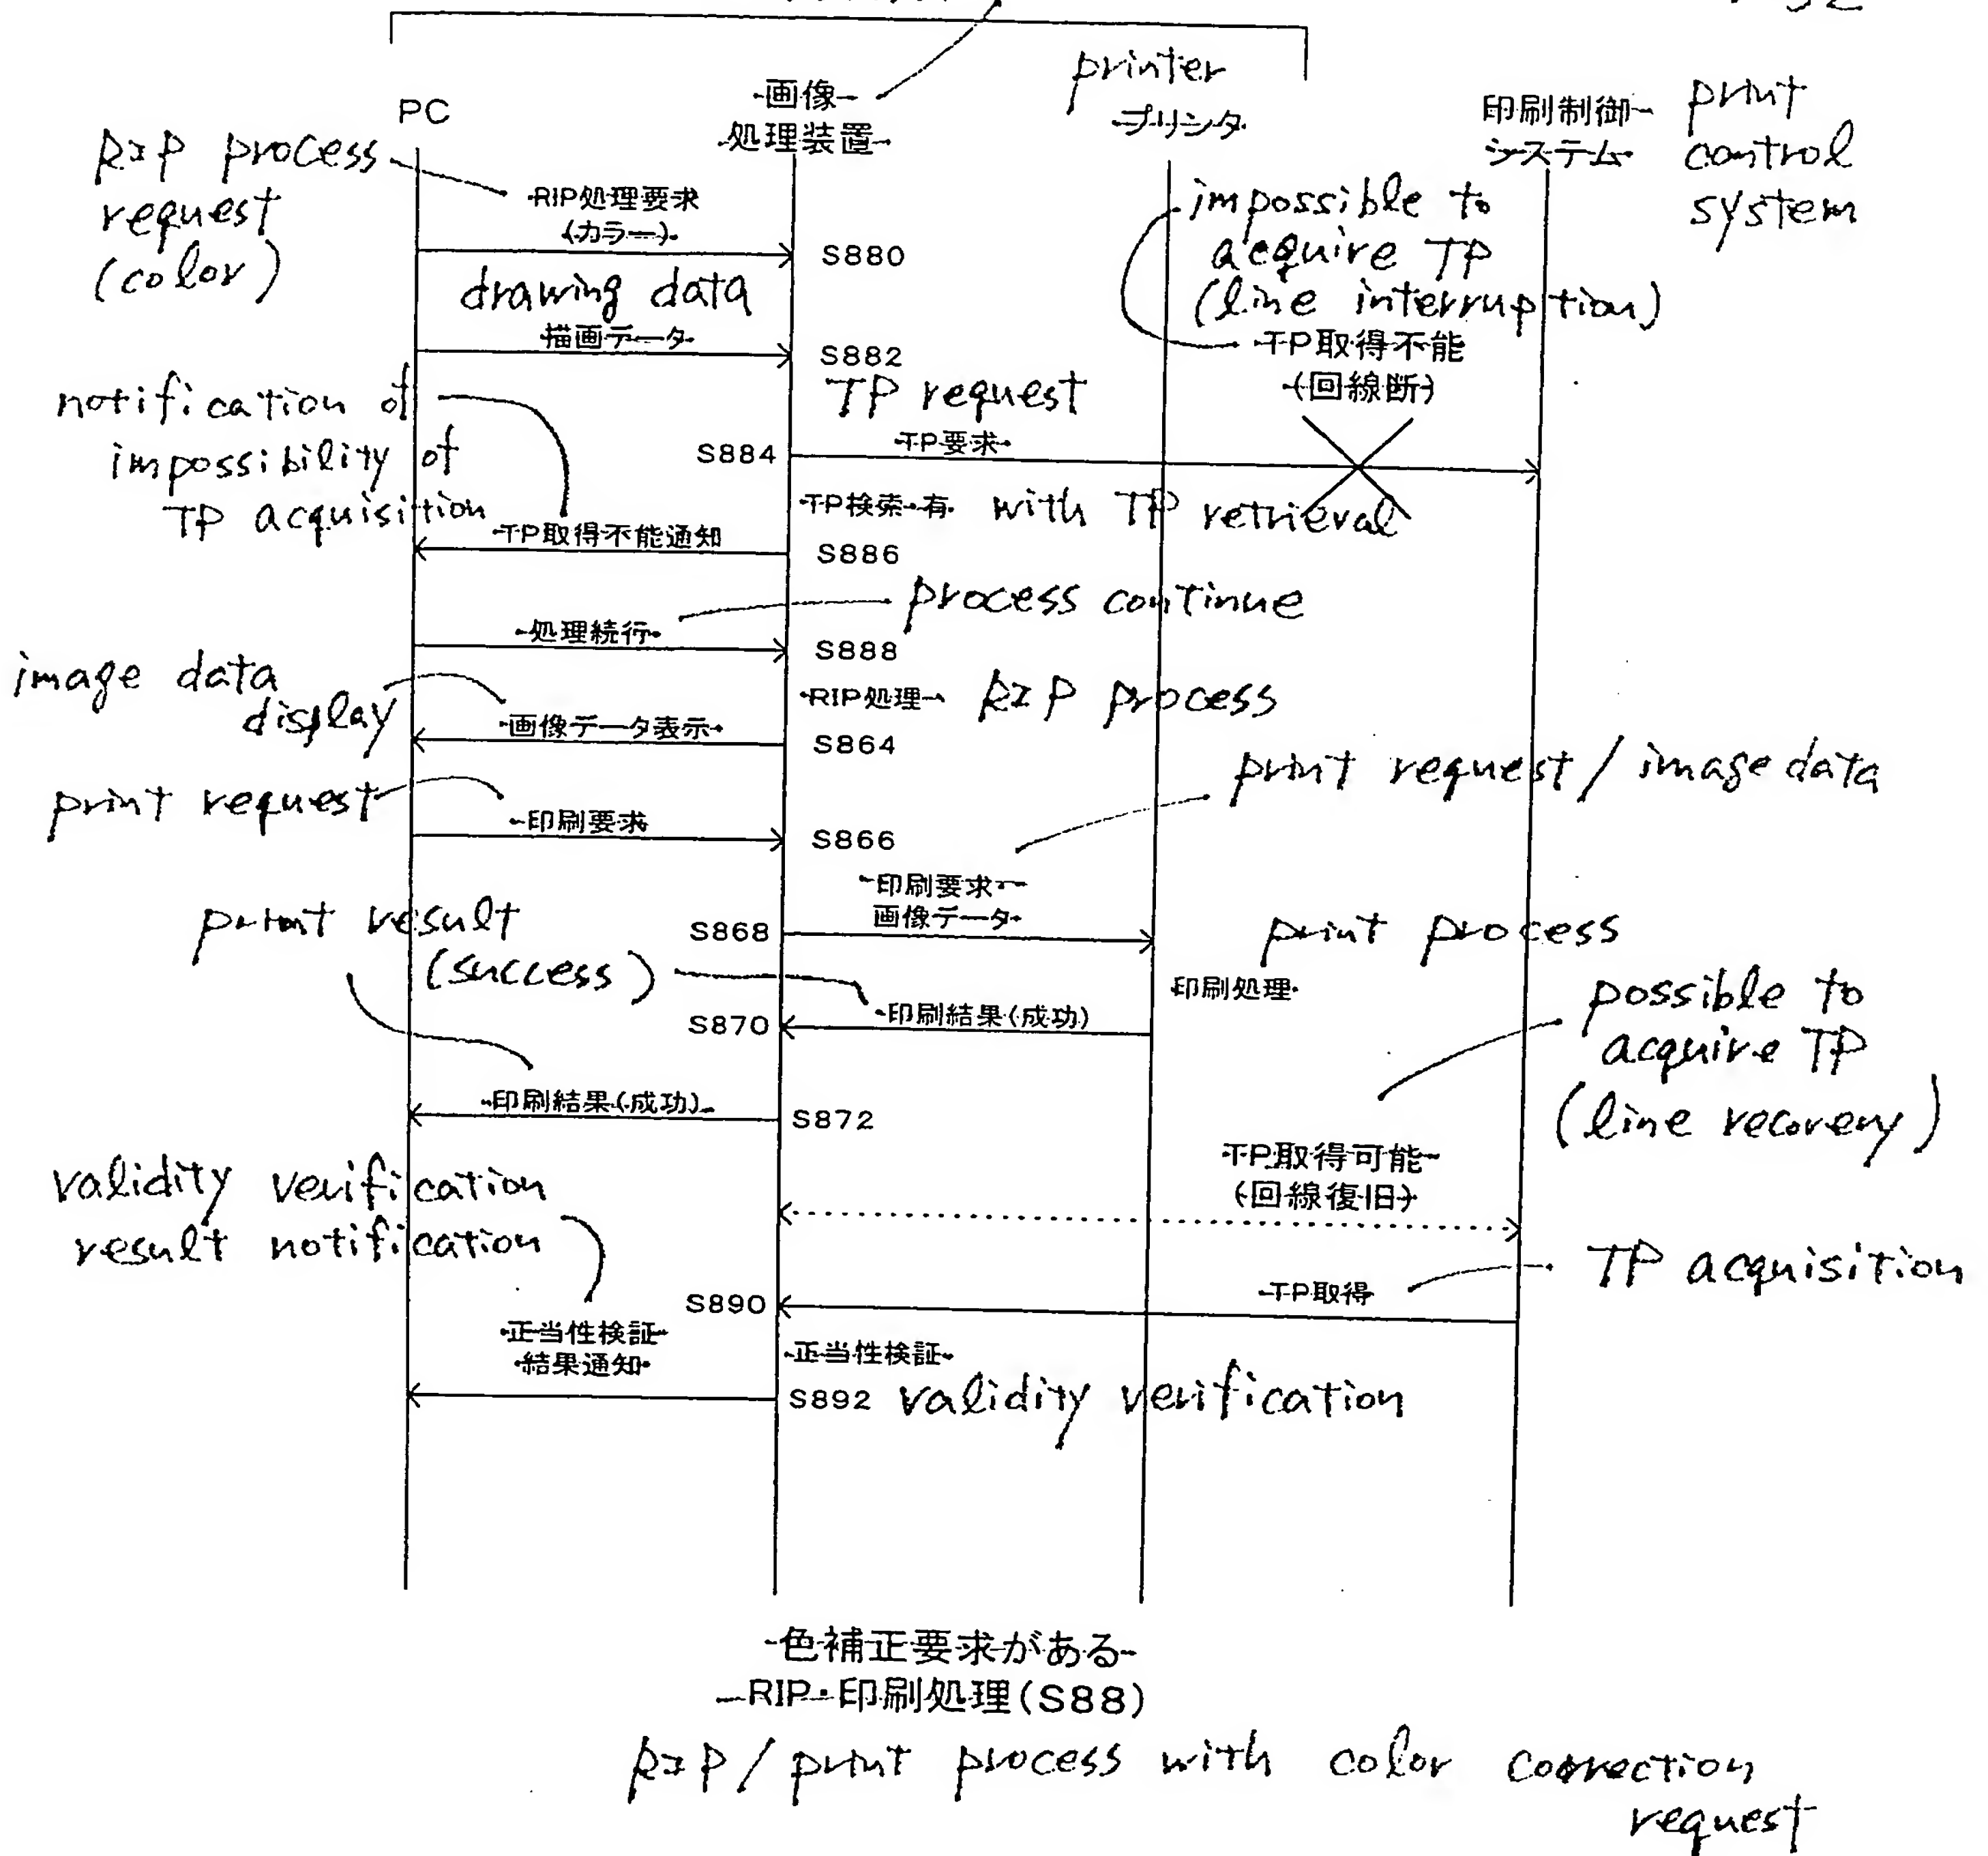 printer
PC
画像
処理装置
プリンタ
印刷制御
システム
print
control
system
RIP process
request
(color)
RIP処理要求
(カラー)
S880
impossible to
acquire TP
(line interruption)
drawing data
描画データ
S882
TP取得不能
(回線断)
notification of
impossibility of
TP acquisition
TP request
S884
TP要求
TP検索・有
with TP retrieval
TP取得不能通知
S886
process continue
処理続行
S888
image data
display
RIP処理
RIP process
画像データ表示
S864
print request / image data
print request
印刷要求
S866
印刷要求
画像データ
print result
(success)
S868
print process
印刷処理
possible to
acquire TP
(line recovery)
S870
印刷結果(成功)
印刷結果(成功)
S872
TP取得可能
(回線復旧)
validity verification
result notification
TP acquisition
S890
TP取得
正当性検証
結果通知
正当性検証
S892
validity verification
色補正要求がある
RIP・印刷処理(S88)
RIP / print process with color correction
request